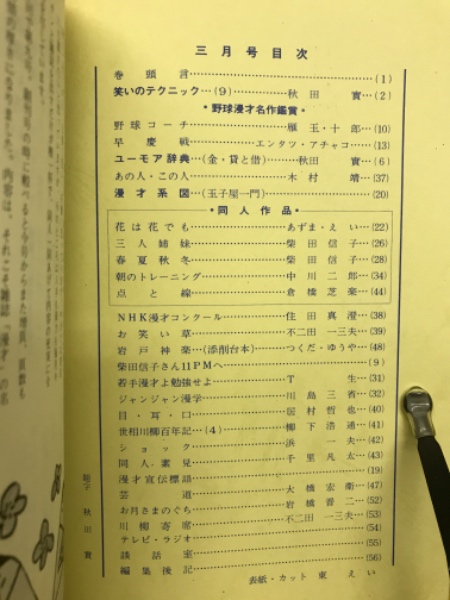 三月号目次
巻頭言…(1)
笑いのテクニック…(9)…秋田實…(2)
・野球漫才名作鑑賞・
野球コーチ…雁玉・十郎…(10)
早慶戦…エンタツ・アチャコ…(13)
ユーモア辞典…(金・貸と借)…秋田實…(6)
あの人・この人…木村靖…(37)
漫才系図…(玉子屋一門)…(20)
・同人作品・
花は花でも…あずま・えい…(22)
三人姉妹…柴田信子…(26)
春夏秋冬…柴田信子…(28)
朝のトレーニング…中川二郎…(34)
点と線…倉橋芝楽…(44)
NHK漫才コンクール…住田真澄…(38)
お笑い草…不二田一三夫…(39)
岩戸神楽…(添削台本)…つくだ・ゆうや…(48)
柴田信子さん11PMへ…(9)
若手漫才よ勉強せよ…T生…(31)
ジャンジャン漫学…川島三省…(32)
目・耳・口…国村哲也…(40)
世相川柳百年記…(4)…柳下浩通…(41)
ショック…浜一夫…(42)
同人・素見…千里凡太…(43)
漫才宣伝標語…(19)
芸道…大橋宏衛…(47)
お月さまのぐち…岩橋晋二…(52)
川柳寄席…不二田一三夫…(53)
テレビ・ラジオ…(54)
談話室…(55)
編集後記…(56)
表紙・カット 東えい
題字 秋田實